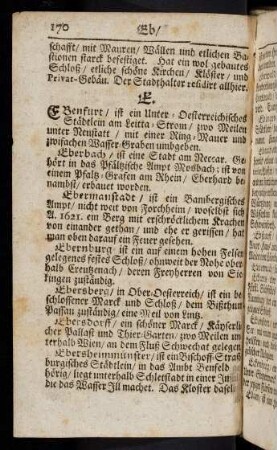 170 Eb/
schafft/ mit Mauren/ Wällen und etlichen Ba-
stionen starck befestiget. Hat ein wol gebautes
Schloß/ etliche schöne Kirchen/ Klöster/ und
Privat-Gebäu. Der Stadthalter residirt allhier.
E.
EBenfurt/ ist ein Unter-Oesterreichisches
Städtlein am Leitta-Strom/ zwo Meilen
unter Neustatt/ mit einer Ring-Mauer und
zwifachen Wasser-Graben umbgeben.
Eberbach/ ist eine Stadt am Neccar. Ge-
hört in das Pfältzische Ampt Moßbach: ist von
einem Pfaltz-Grafen am Rhein/ Eberhard be-
nambst/ erbauet worden.
Ebermanstadt/ ist ein Bambergisches
Ampt/ nicht weit von Forchheim/ woselbst sich
A. 1621. ein Berg mit erschröcklichem Krachen
von einander gethan/ und ehe er gerissen/ hat
man oben darauf ein Feuer gesehen.
Ebernburg ist ein auf einem hohen Felsen
gelegenes festes Schloß/ ohnweit der Nohe ober-
halb Creutzenach/ deren Freyherren von Si-
ckingen zuständig.
Ebersberg/ in Ober-Oesterreich/ ist ein be-
schlossener Marck und Schloß/ dem Bißthum
Passau zuständig/ eine Meil von Lintz.
Ebersdorff/ ein schöner Marck/ Käyserli-
cher Pallast und Thier-Garten/ zwo Meilen un-
terhalb Wien/ an dem Fluß Schwechat gelegen.
Ebersheimmünster/ ist ein Bischoff-Straß-
burgisches Städtlein/ in das Ambt Benfeld ge-
hörig/ liegt unterhalb Schletstadt in einer Insul/
die das Wasser Ill machet. Das Kloster daselbst